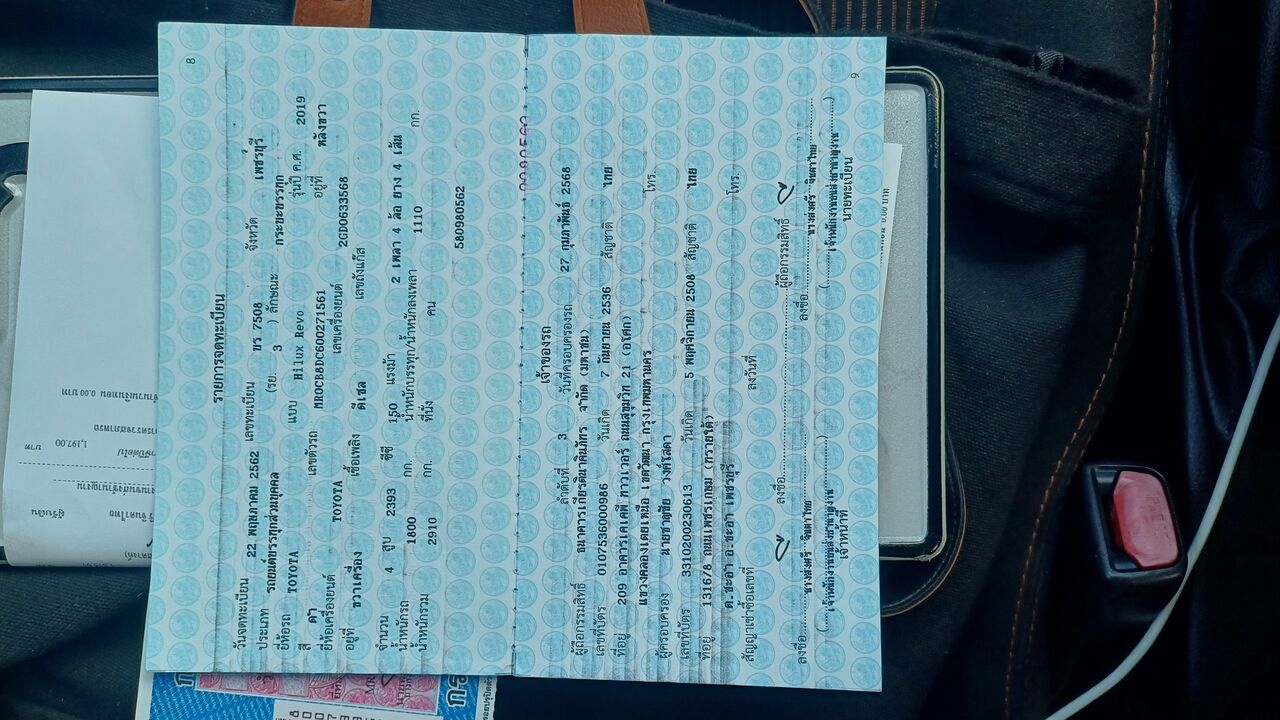 8
รายการจดทะเบียน
วันจดทะเบียน 22 พฤษภาคม 2562 เลขทะเบียน ขร 7508 จังหวัด เพชรบุรี
ประเภท รถยนต์บรรทุกส่วนบุคคล (รย. 3 ) ลักษณะ กระบะบรรทุก
ยี่ห้อรถ TOYOTA แบบ Hilux Revo รุ่นปี ค.ศ. 2019
สี ดำ เลขตัวรถ MR0CB8DC600271561 อยู่ที่ หลังขวา
ยี่ห้อเครื่องยนต์ TOYOTA เลขเครื่องยนต์ 2GD0633568
อยู่ที่ ขวาเครื่อง เชื้อเพลิง ดีเซล เลขถังแก๊ส
จำนวน 4 สูบ 2393 ซีซี 150 แรงม้า 2 เพลา 4 ล้อ ยาง 4 เส้น
น้ำหนักรถ 1800 กก. น้ำหนักบรรทุก/น้ำหนักลงเพลา 1110 กก.
น้ำหนักรวม 2910 กก. ที่นั่ง คน
580980562
เจ้าของรถ
ลำดับที่ 3 วันที่ครอบครองรถ 27 กุมภาพันธ์ 2568
ผู้ถือกรรมสิทธิ์ ธนาคารเกียรตินาคินภัทร จำกัด (มหาชน)
เลขที่บัตร 0107536000986 วันเกิด 7 กันยายน 2536 สัญชาติ ไทย
ที่อยู่ 209 อาคารเคเคพี ทาวเวอร์ ถนนสุขุมวิท 21 (อโศก)
แขวงคลองเตยเหนือ เขตวัฒนา กรุงเทพมหานคร โทร.
ผู้ครอบครอง นายชาญชัย วงค์โสดา
เลขที่บัตร 3310200230613 วันเกิด 5 พฤศจิกายน 2508 สัญชาติ ไทย
ที่อยู่ 1316/8 ถนนเพชรเกษม (ทรายใต้)
ต.ชะอำ อ.ชะอำ เพชรบุรี โทร.
สัญญาเช่าซื้อเลขที่ ลงวันที่
ลงชื่อ ผู้ถือกรรมสิทธิ์
ลงชื่อ ลงชื่อ
เจ้าหน้าที่ นายทะเบียน
9
1,197.00 บาท
0.00 บาท